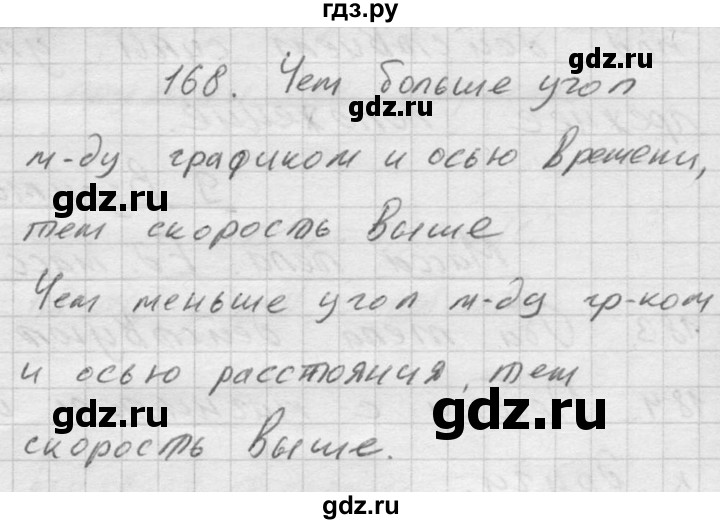 гдз.ру
168. Чем больше угол
м-ду графиком и осью времени,
тем скорость выше
Чем меньше угол м-ду гр-ком
и осью расстояния, тем
скорость выше.
gdz.ru
gdz.ru
gdz.ru
gdz.ru
gdz.ru
gdz.ru
gdz.ru
gdz.ru